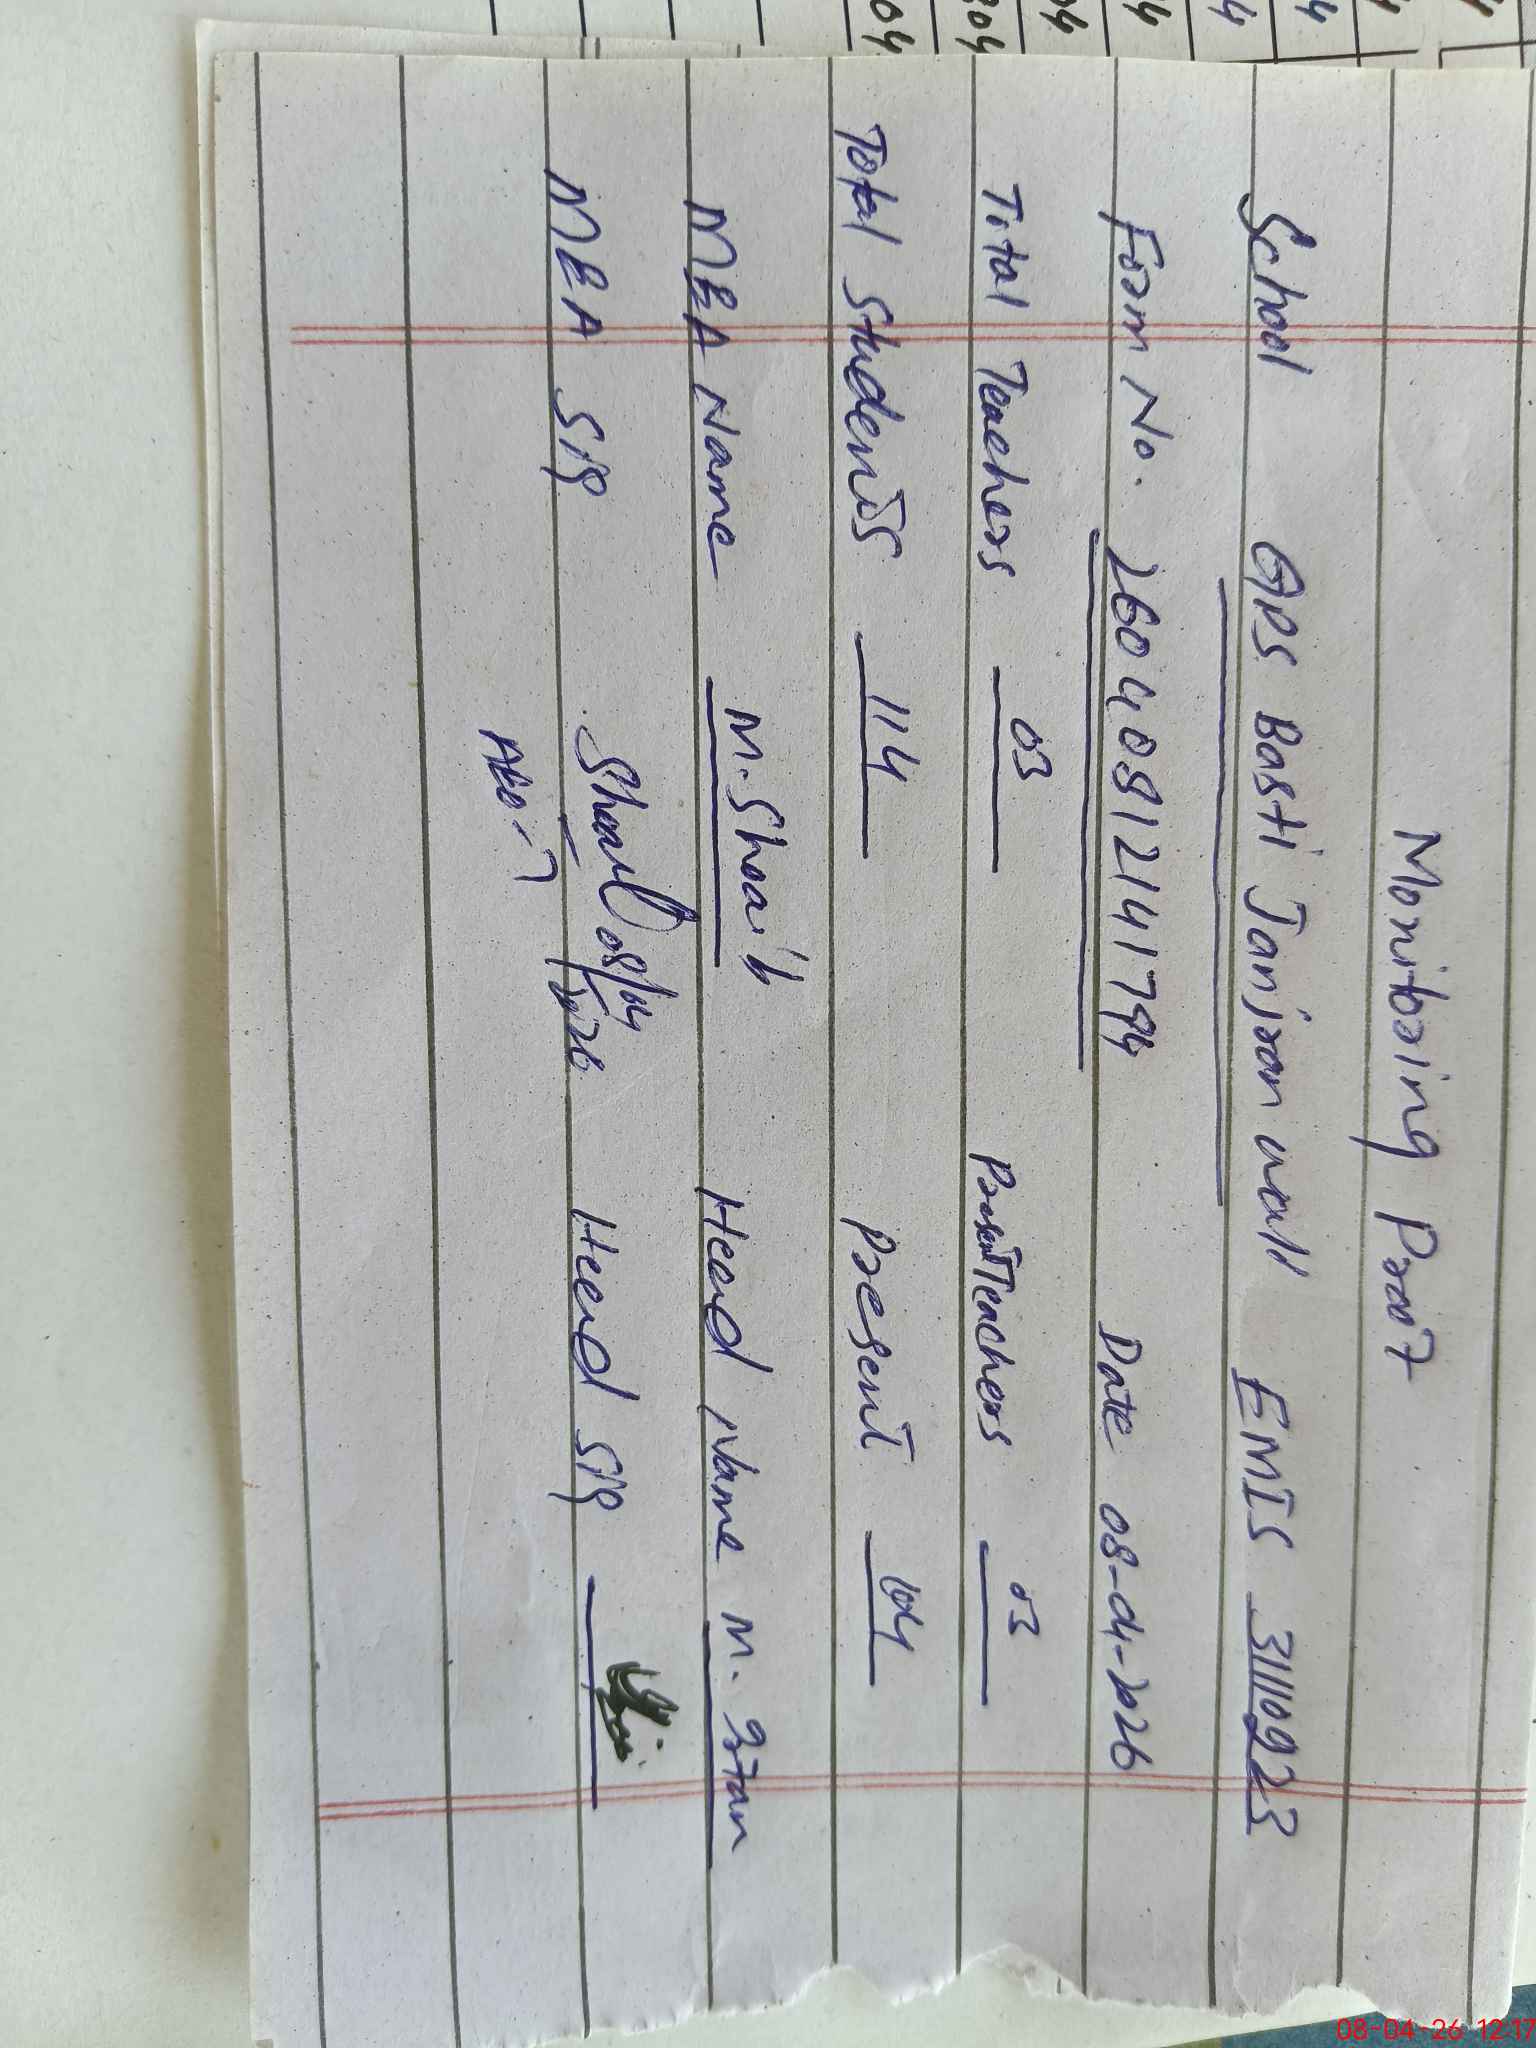 Monitoring Proof
School GPS Basti Janiran wali EMIS 31110923
Form No. 26040812141794 Date 08-04-2026
Total Teachers 03 Present Teachers 03
Total Students 114 Present 104
MEA Name M. Shoaib Head Name M. Irfan
MEA Sig Shoaib 08/04/2026 Head Sig
08-04-26 12:17